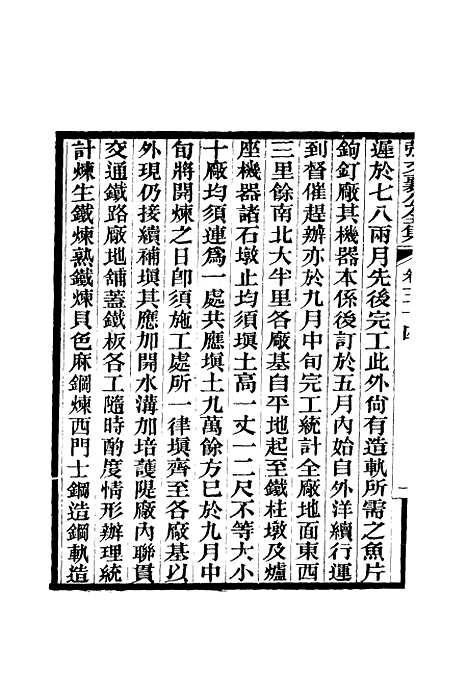 張文襄公全集 卷三十四 一
遲於七八兩月先後完工此外尙有造軌所需之魚片
鉤釘廠其機器本係後訂於五月內始自外洋續行運
到督催趕辦亦於九月中旬完工統計全廠地面東西
三里餘南北大半里各廠基自平地起至鐵柱墩及爐
座機器諸石墩止均須塡土高一丈一二尺不等大小
十廠均須運爲一處共應塡土九萬餘方已於九月中
旬將開煉之日卽須施工處所一律塡齊至各廠基以
外現仍接續補塡其應加開水溝加培護隄廠內聯貫
交通鐵路廠地舖蓋鐵板各工隨時酌度情形辦理統
計煉生鐵煉熟鐵煉貝色麻鋼煉西門士鋼造鋼軌造